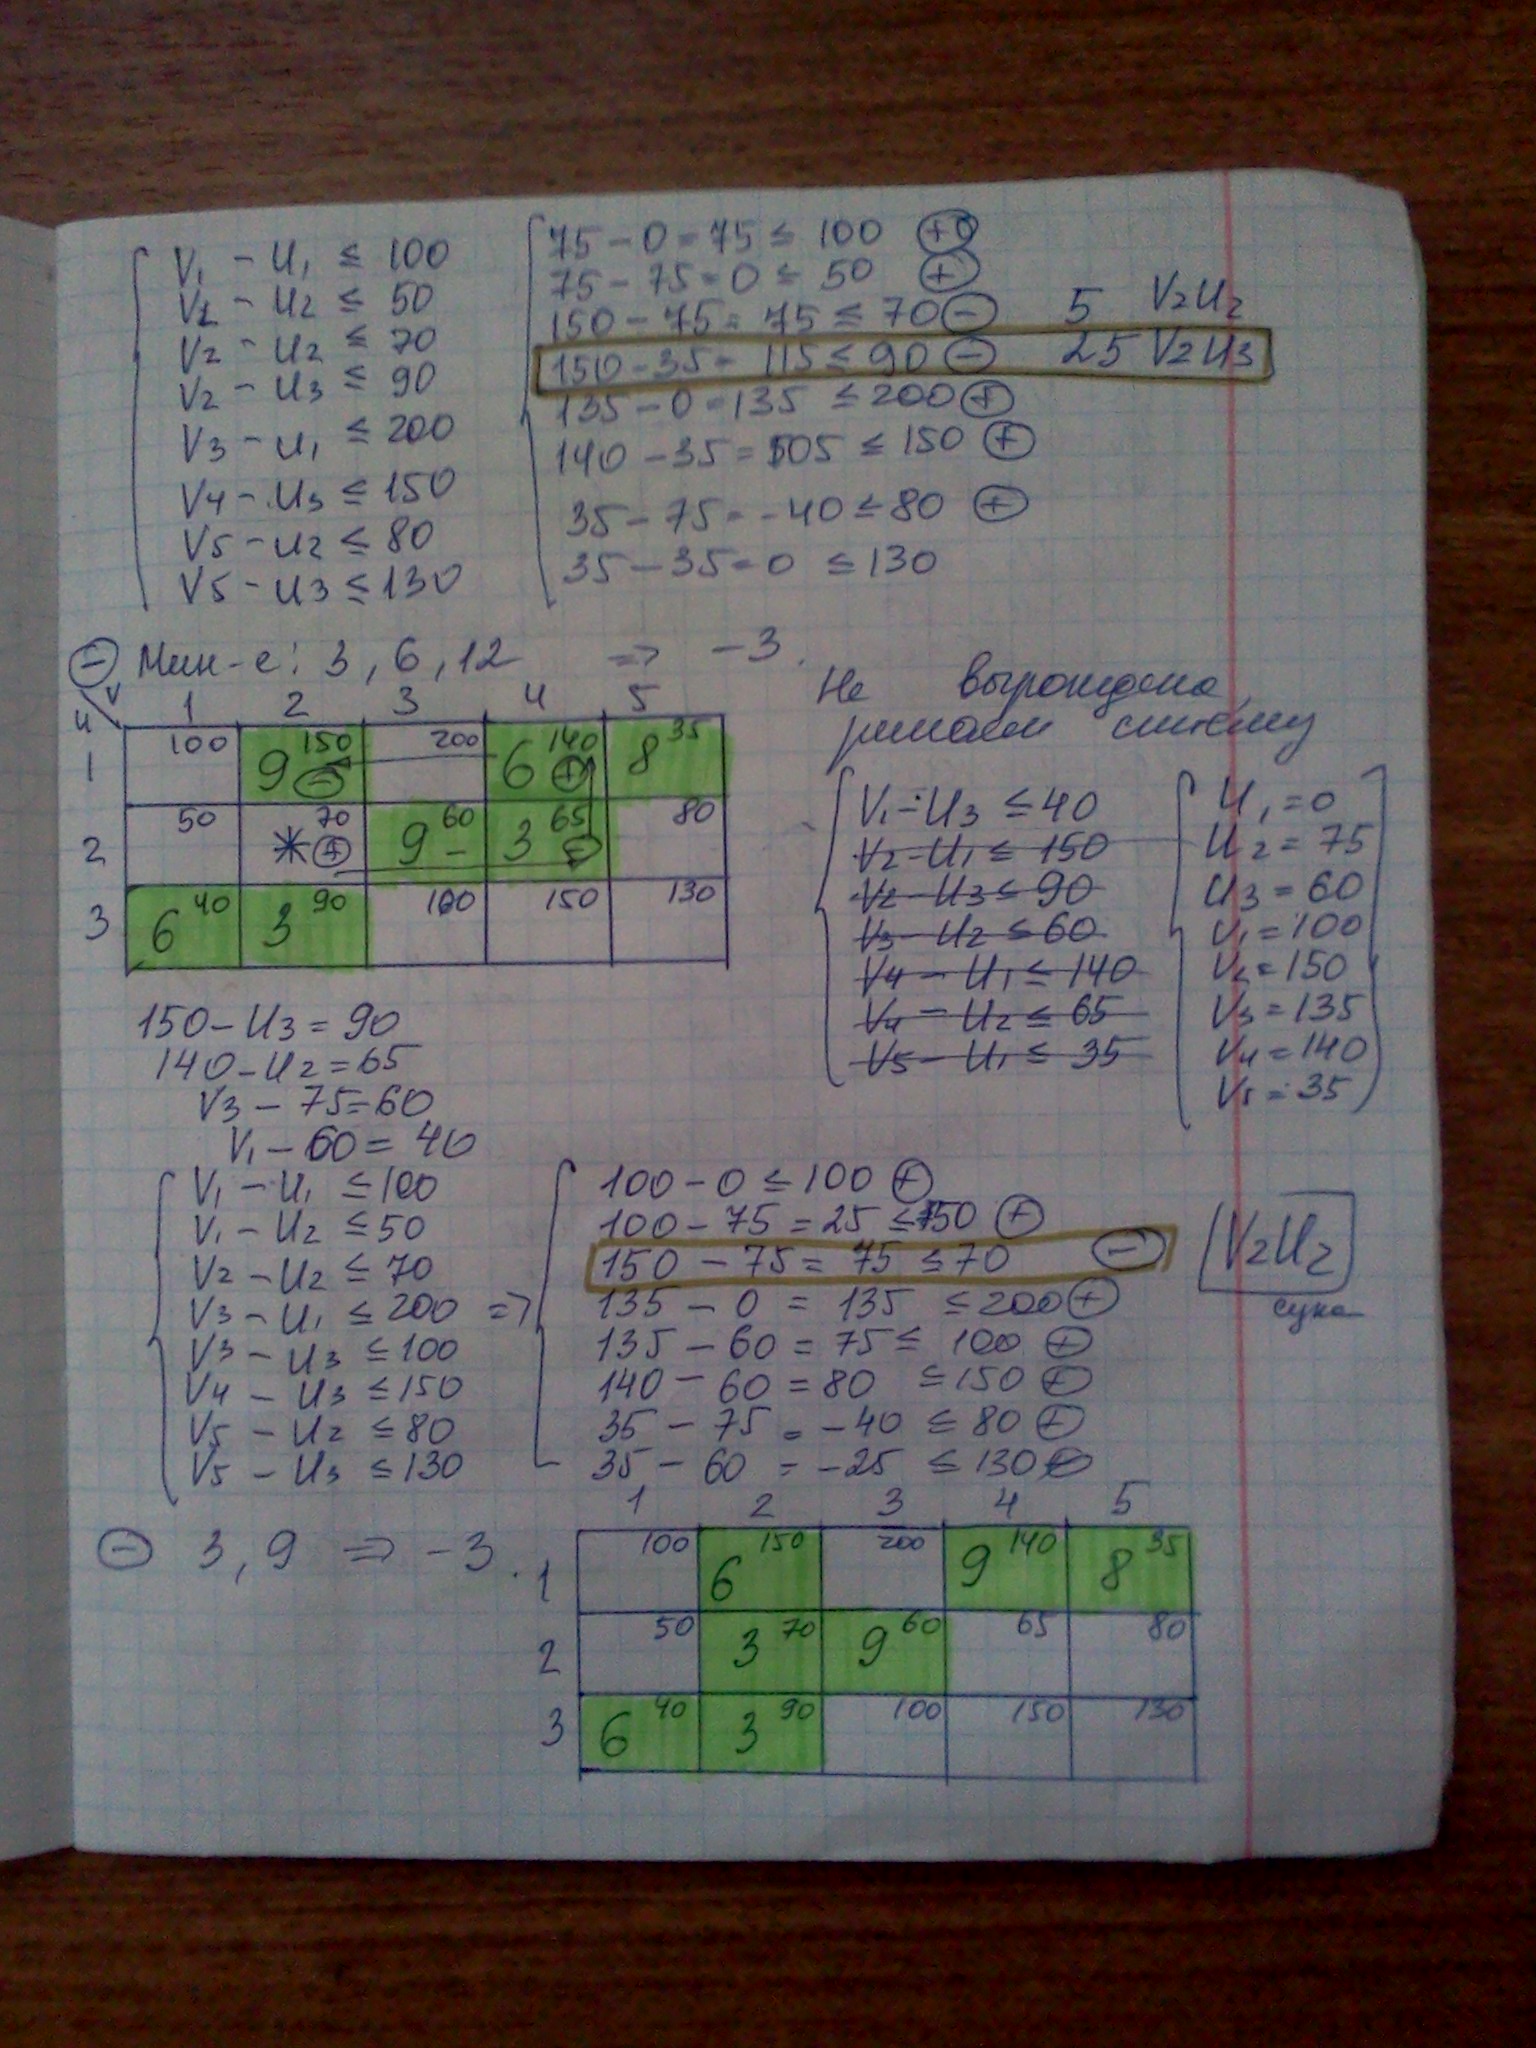 V₁ - U₁ ≤ 100
V1 - U2 ≤ 50
V2 - U2 ≤ 70
V2 - U3 ≤ 90
V3 - U₁ ≤ 200
V4 - U3 ≤ 150
V5 - U2 ≤ 80
V5 - U3 ≤ 130
75 - 0 = 75 ≤ 100 ⊕
75 - 75 = 0 ≤ 50 ⊕
150 - 75 = 75 ≤ 70 ⊖ 5 V2U2
150 - 35 = 115 ≤ 90 ⊖ 25 V2U3
135 - 0 = 135 ≤ 200 ⊕
140 - 35 = 105 ≤ 150 ⊕
35 - 75 = -40 ≤ 80 ⊕
35 - 35 = 0 ≤ 130
⊖ Мин-е: 3, 6, 12 => -3.
Не вырождена,
решаем систему
U V 1 2 3 4 5
1 100 9 150 ⊖ 200 6 140 ⊕ 8 35
2 50 * 70 ⊕ 9 60 - 3 65 ⊖ 80
3 6 40 3 90 100 150 130
V₁ - U3 ≤ 40
V2 - U₁ ≤ 150
V2 - U3 ≤ 90
V3 - U2 ≤ 60
V4 - U₁ ≤ 140
V4 - U2 ≤ 65
V5 - U₁ ≤ 35
U₁ = 0
U2 = 75
U3 = 60
V₁ = 100
V2 = 150
V3 = 135
V4 = 140
V5 = 35
150 - U3 = 90
140 - U2 = 65
V3 - 75 = 60
V₁ - 60 = 40
V₁ - U₁ ≤ 100
V₁ - U2 ≤ 50
V2 - U2 ≤ 70
V3 - U₁ ≤ 200 =>
V3 - U3 ≤ 100
V4 - U3 ≤ 150
V5 - U2 ≤ 80
V5 - U3 ≤ 130
100 - 0 ≤ 100 ⊕
100 - 75 = 25 ≤ 50 ⊕
150 - 75 = 75 ≤ 70 ⊖ V2U2
сука
135 - 0 = 135 ≤ 200 ⊕
135 - 60 = 75 ≤ 100 ⊕
140 - 60 = 80 ≤ 150 ⊕
35 - 75 = -40 ≤ 80 ⊕
35 - 60 = -25 ≤ 130 ⊕
⊖ 3, 9 => -3.
1 2 3 4 5
1 100 6 150 200 9 140 8 35
2 50 3 70 9 60 65 80
3 6 40 3 90 100 150 130